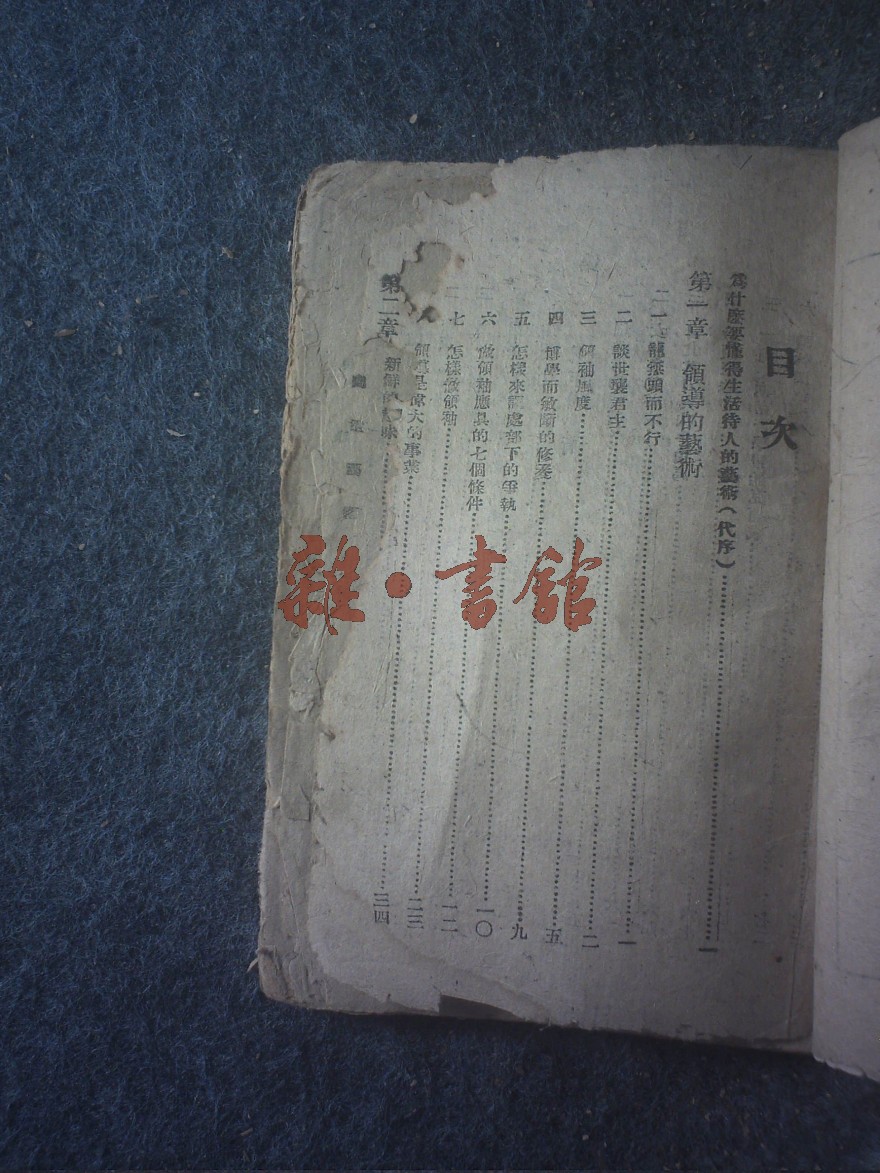 目次
為什麼要懂得生活待人的藝術(代序)……一
第一章 領導的藝術
一 龍無頭而不行……一
二 談世襲君主……二
三 領袖風度……五
四 博學而敏斷的修養……九
五 怎樣來調處部下的爭執……一〇
六 做領袖應具的七個條件……一二
七 怎樣做領袖……二三
八 領導是偉大的事業……三四
第二章 新鮮的 味
雜·書館